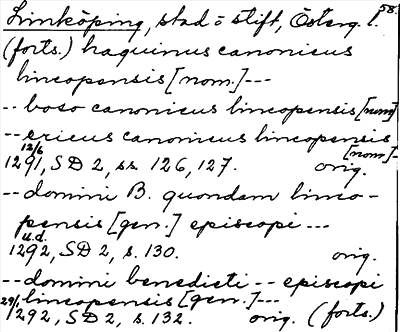 58.
Linköping, stad o stift, Österg. l.
(forts.) haquinus canonicus
lincopensis [nom.] ---
-- boso canonicus lincopensis [nom]
-- ericus canonicus lincopensis
[nom] -
12/6
1291, SD 2, ss. 126, 127. orig.
-- domini B. quondam linco-
pensis [gen.] episcopi ---
u.d.
1292, SD 2, s. 130. orig.
-- domini benedicti -- episcopi
lincopensis [gen.] ---
29/1
1292, SD 2, s. 132. orig. (forts.)